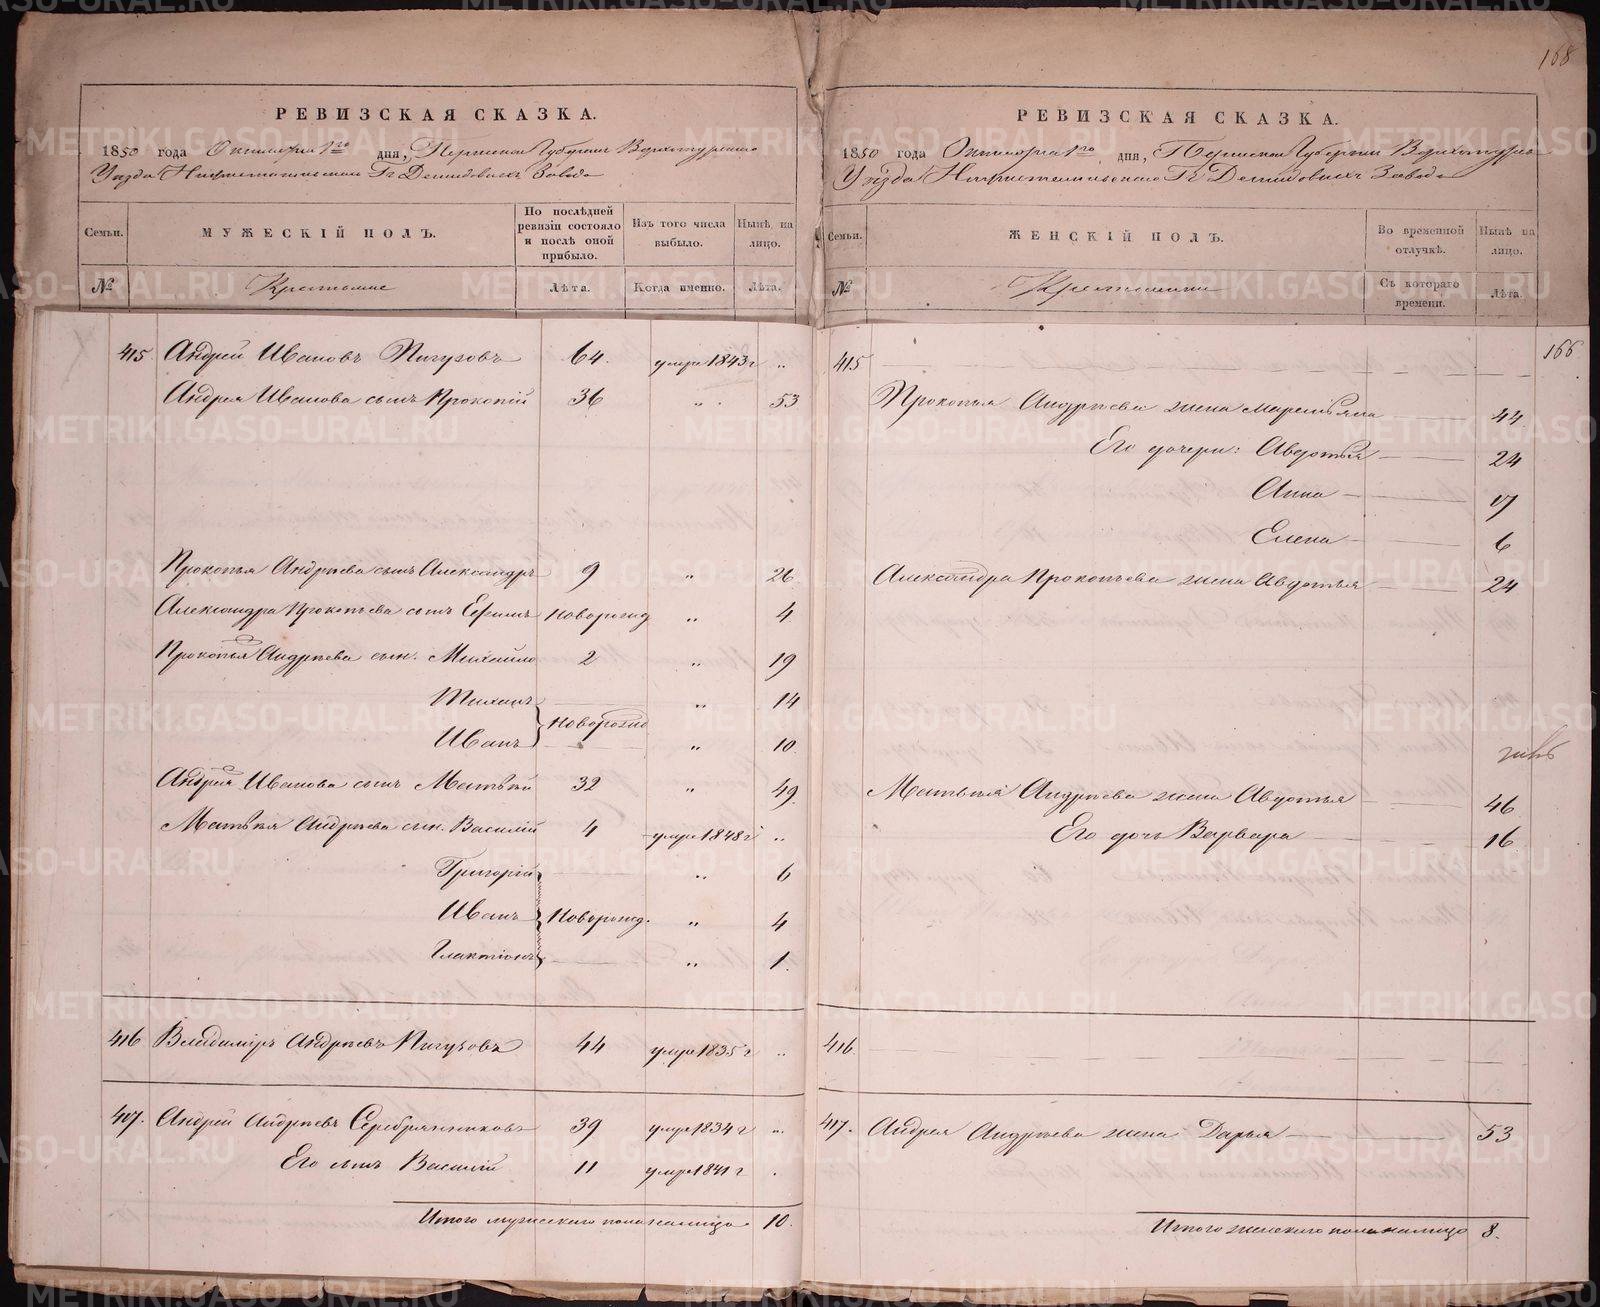 168
РЕВИЗСКАЯ СКАЗКА.
1850 года Октября 1го дня, Пермской Губернии Верхотурскаго
Уезда Нижнетагильскаго Гг Демидовыхъ Завода
Семьи.
МУЖЕСКІЙ ПОЛЪ.
По послѣдней ревизіи состояло и послѣ оной прибыло.
Изъ того числа выбыло.
Нынѣ на лицо.
№
Крестьяне
Лѣта.
Когда именно.
Лѣта.
415 Андрей Ивановъ Пичуговъ 64. умре 1843 г „
Андрея Иванова сынъ Прокопій 36 „ 53
Прокопья Андреева сынъ Александръ 9 „ 26
Александра Прокопьева сынъ Ефимъ новорожд „ 4
Прокопья Андреева сын. Михайло 2 „ 19
Тихонъ „ 14
новорожд
Иванъ „ 10
Андрея Иванова сынъ Матвѣй 32 „ 49
Матвѣя Андреева сын. Василій 4 умре 1848 г „
Григорій „ 6
Иванъ Новорожд. „ 4
Глактіонъ „ 1.
416 Владимиръ Андреевъ Пичуговъ 44 умре 1835 г „
417. Андрей Андреевъ Серебрянниковъ 39 умре 1834 г „
Его сынъ Василій 11 умре 1841 г
Итого мужескаго пола налицо 10.
РЕВИЗСКАЯ СКАЗКА.
1850 года Октября 1го дня, Пермской Губерніи Верхотурска
Уѣзда Нижнетагильскаго Гг Демидовыхъ Завода
Семьи.
ЖЕНСКІЙ ПОЛЪ.
Во временной отлучкѣ.
Нынѣ на лицо.
№
Крестьянки
Съ котораго времени.
Лѣта.
166
415
Прокопья Андреева жена Маремьяна 44
Его дочери: Авдотья 24
Анна 17
Елена 6
Александра Прокопьева жена Авдотья 24
Матвѣя Андреева жена Авдотья 46
Его дочь Варвара 16
416.
417. Андрея Андреева жена Дарья 53
Итого женскаго пола налицо 8.
METRIKI.GASO-URAL.RU